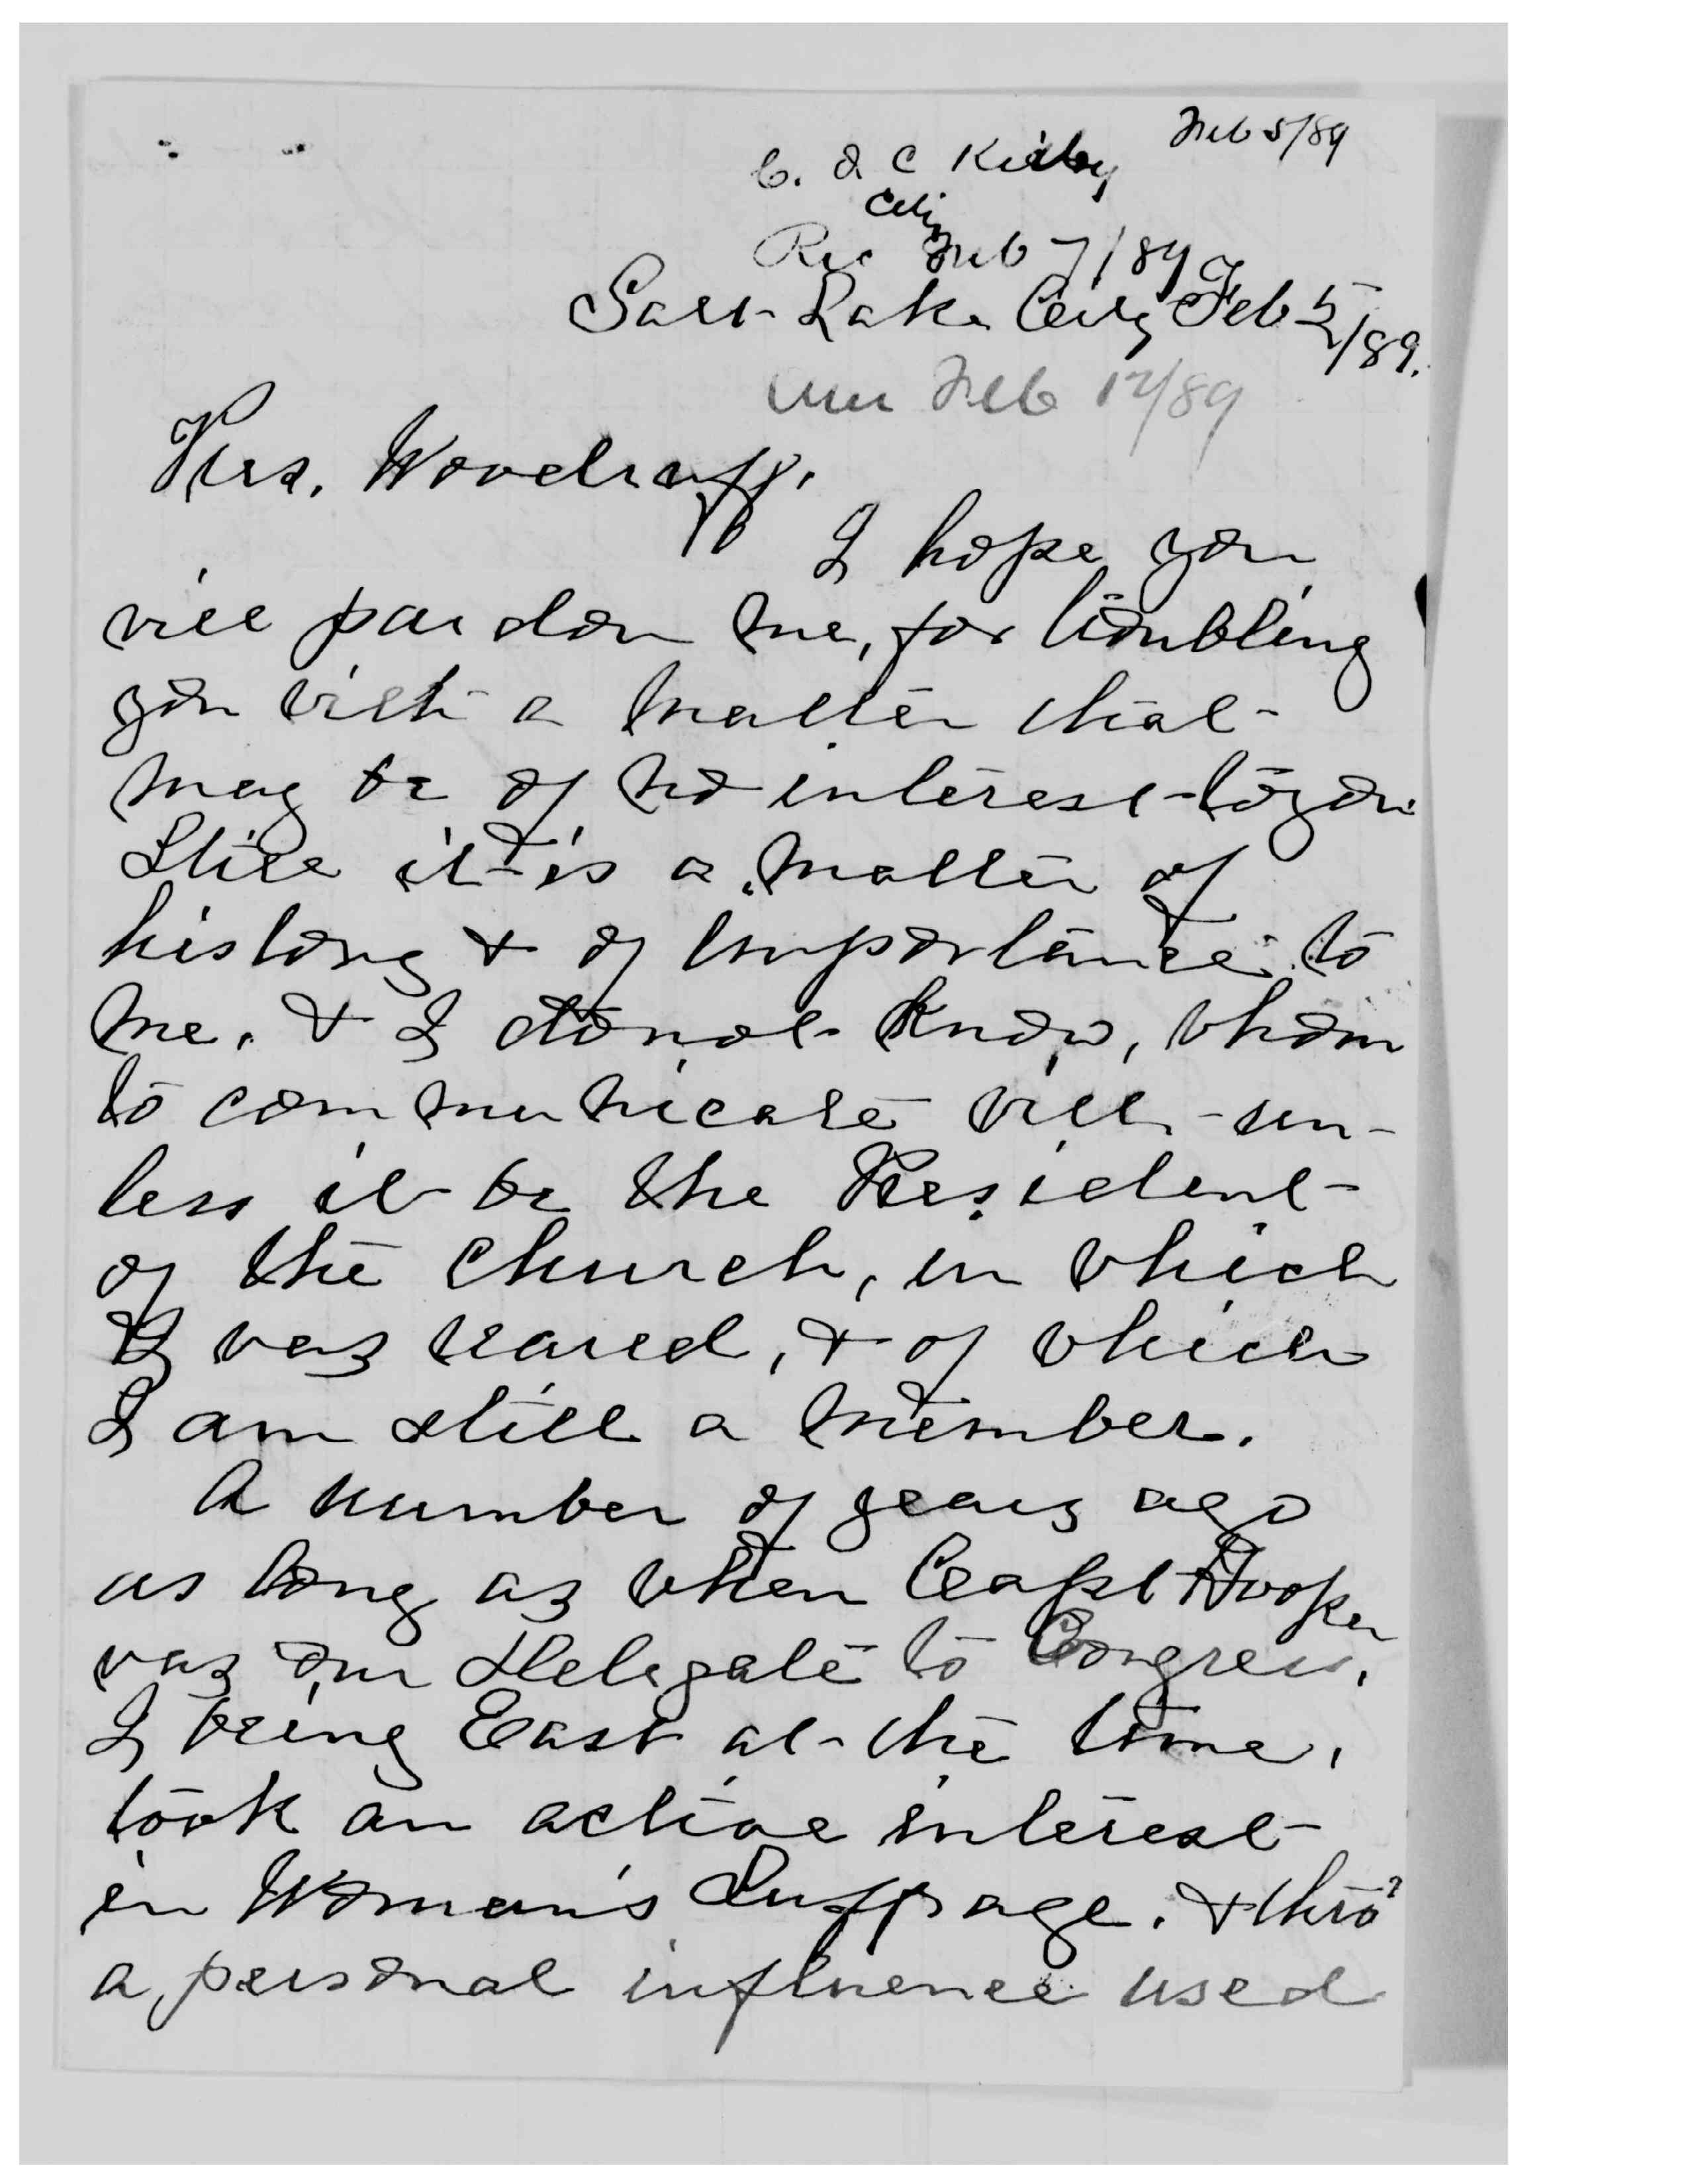 Feb 5/89
C. J C Kirby
City
Rec Feb 7/89
Salt Lake City Feb 5/89.
Feb 12/89
Pres. Woodruff.
I hope you
will pardon me, for troubling
you with a matter that
may be of no interest to you
Still it is a matter of
history & of importance to
me. & I do not know, whom
to communicate with - un-
less it be the President
of the Church, in which
I was reared, & of which
I am still a member.
A number of years ago
as long as when Capt Hooper
was our Delegate to Congress,
I being East at the time,
took an active interest
in Woman's Suffrage. & thro'
a personal influence used